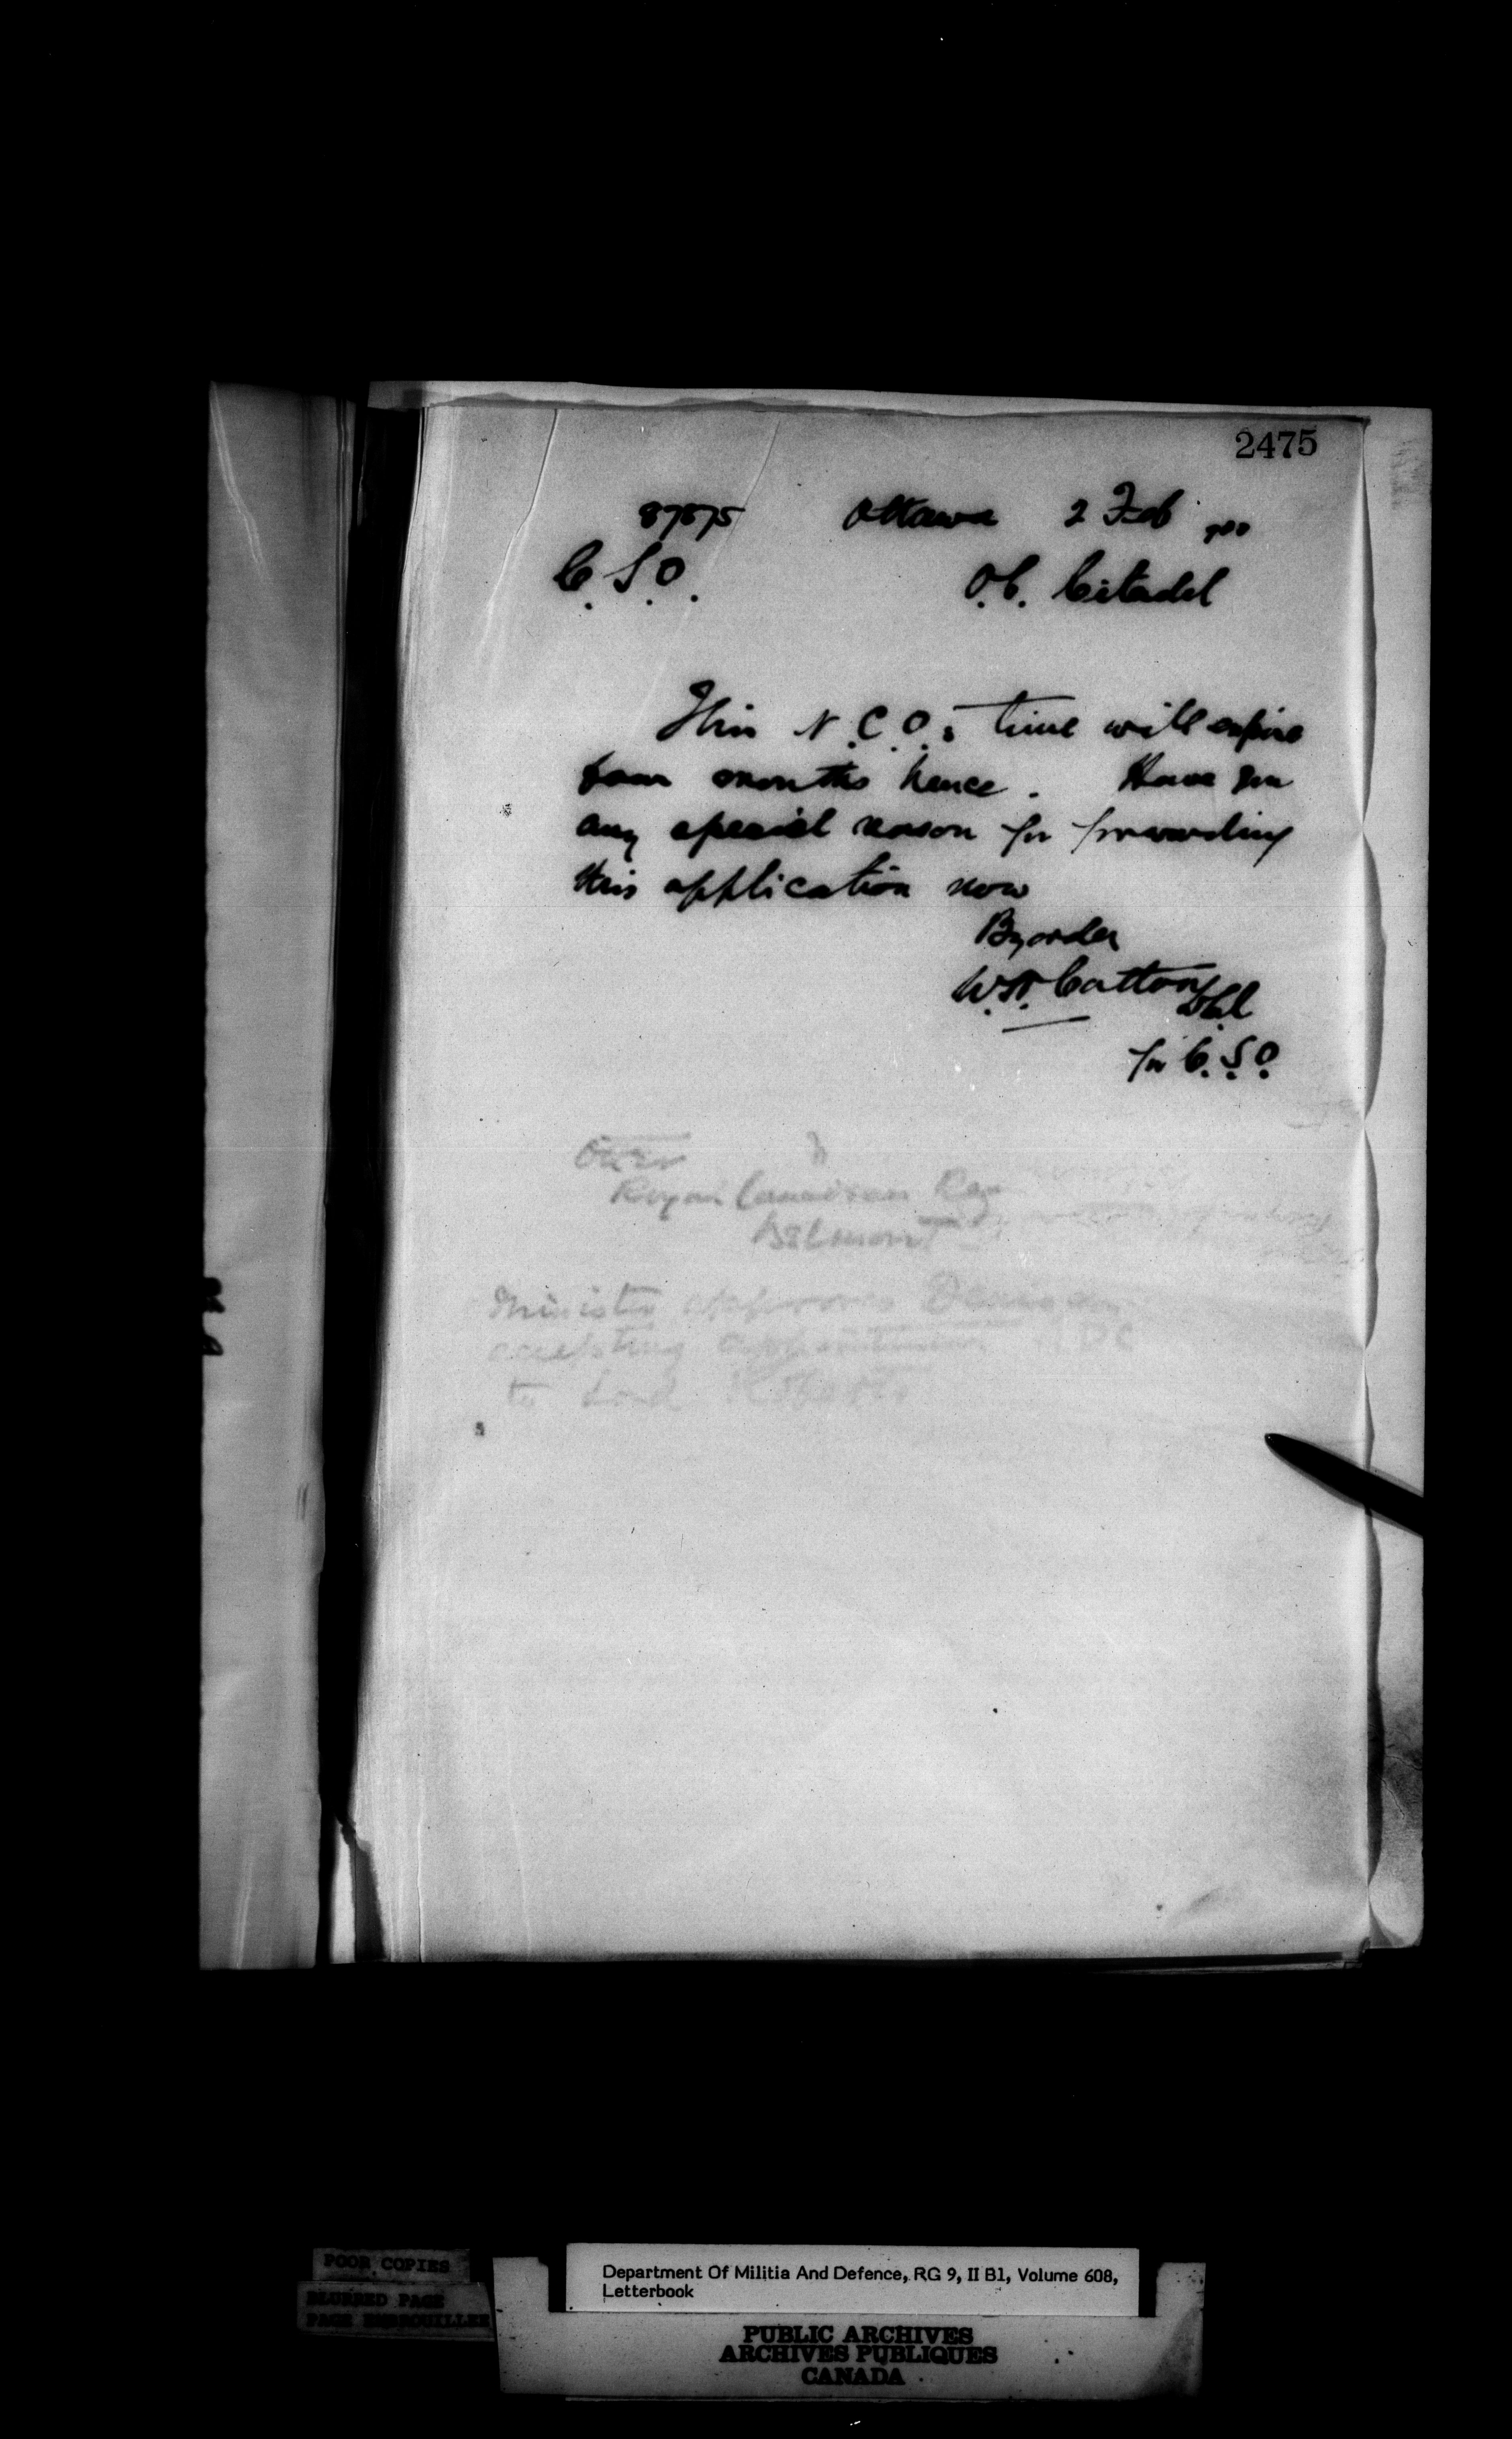 2475
87875 Ottawa 2 Feb 900
C.S.O. O.C. Citadel
This N.C.O.s time will expire
four months hence. Have you
any special reason for forwarding
this application now
By order
Cotton
for C.S.O.
Otter
Royal Canadian Reg
Belmont
Minister approves Denison
accepting appointment ADC
to Lord Roberts
POOR COPIES
BLURRED PAGE
PAGE EMBROUILLEE
Department Of Militia And Defence, RG 9, II B1, Volume 608,
Letterbook
PUBLIC ARCHIVES
ARCHIVES PUBLIQUES
CANADA